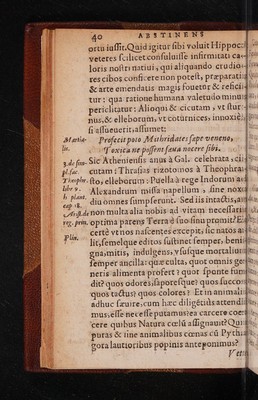 40 ABSTINENS
ortu iussit. Quid igitur sibi voluit Hippoc
veteres scilicet consuluisse infirmitati ca
lotis nostri natiui, qui aliquando crudio
res cibos conficere non potest, præparatiō
& arte emendatis magis fouetur & refici
tur: qua ratione humana valetudo minus
periclitatur: Alioqui & cicutam, vt stur
nus, & elleborum, vt coturnices, innoxiè
si assueuerit, assumet:
Martia-
lis.
Profecit poto Mithridates sæpe veneno,
Toxica ne possent sæua nocere sibi.
Sic Atheniensis anus à Gal. celebrata, ci
cutam: Thrasias rizotomos à Theophra
sto, elleborum: Puella à rege Indorum
Alexandrum missa napellum, sine nox
diu omnes sumpserunt. Sed iis intactis,
non multa alia nobis ad vitam necessaria
optima parens Terra è suo sinu promit?
certè vt nos nascentes excepit, sic natos a
lit, semelque editos sustinet semper, beni
gna, mitis, indulgens, vsusque mortalium
semper ancilla: quæ culta, quot omnis ge
neris alimenta profert? quot sponte fun
dit? quos odores, saporesque? quos succos
quos tactus? quos colores? Et in animalia
adhuc sæuire, cum hæc diligētiùs attendi
mus, esse necesse putamus? ea carcere coer
cere quibus Natura cœlū assignauit? Qui
puras & sine animalibus cœnas cū Pytha
gora lautioribus popinis anteponimus?
3. de sim-
pl. fac.
Theoph.
libr 9.
h. plant.
cap 18.
Arist. de
reg. prin.
Plin.